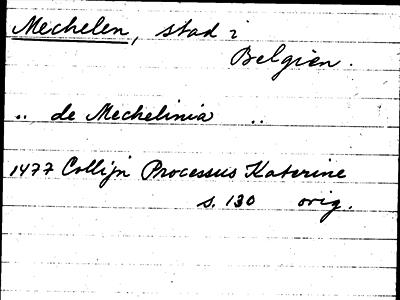 Mechelen, stad i
Belgien.
.. de Mechelinia ..
1477 Collijn Processus Katerine
s. 130 orig.